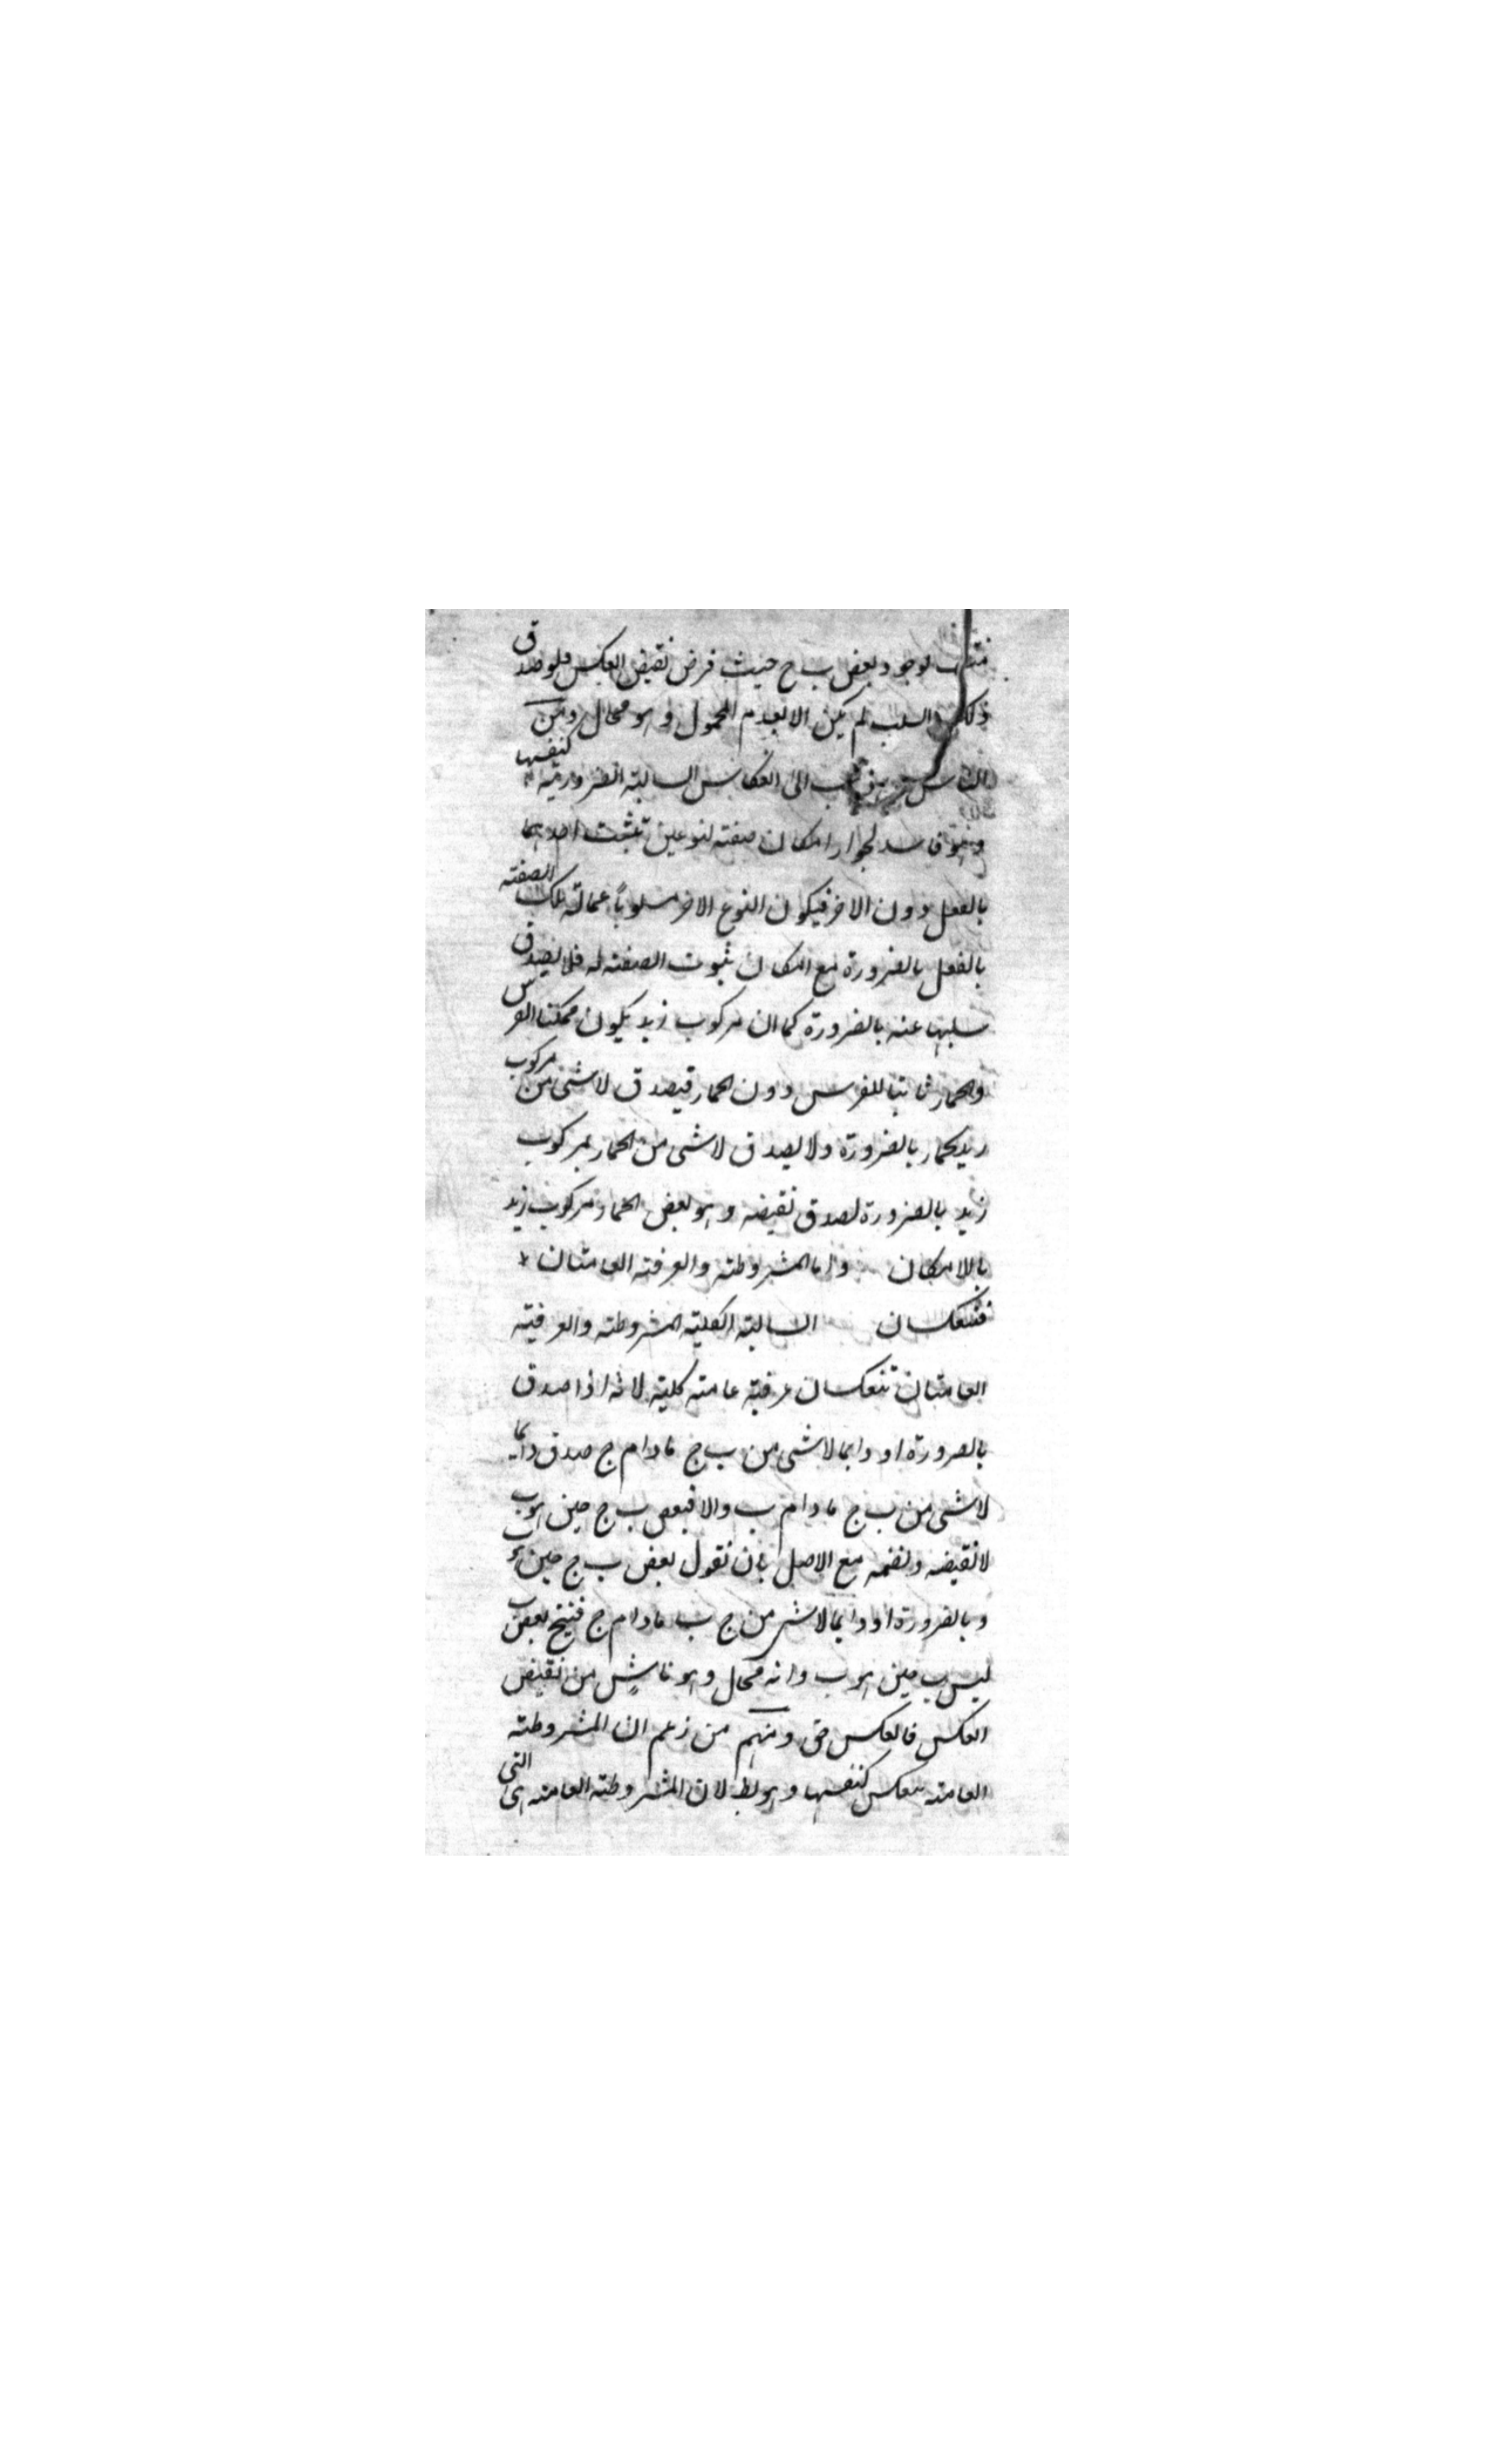 لوجود بعض ب ج حيث فرض نقيض العكس فلو صدق
ذلك السلب لم يكن الا بعدم المحمول وهو محال ومن
الناس من ذهب الى انعكاس السالبة الضرورية كنفسها
وهو فاسد لجواز امكان صفة لنوعين تثبت احدهما
بالفعل دون الاخر فيكون النوع الاخر مسلوباً عما له تلك الصفة
بالفعل بالضرورة مع امكان ثبوت الصفة له فلا يصدق
سلبها عنه بالضرورة كما ان مركوب زيد يكون ممكنا للفرس
والحمار ثابتا للفرس دون الحمار فيصدق لا شى من مركوب
زيد بحمار بالضرورة ولا يصدق لا شى من الحمار بمركوب
زيد بالضرورة لصدق نقيضه وهو بعض الحمار مركوب زيد
بالامكان واما المشروطة والعرفية العامتان
فتنعكسان السالبة الكلية المشروطة والعرفية
العامتان تنعكسان عرفية عامة كلية لانه اذا صدق
بالضرورة او دايما لا شى من ب ج مادام ج صدق دايما
لا شى من ب ج مادام ب والا فبعض ب ج حين هو ب
لانقيضه ونضمه مع الاصل بان نقول بعض ب ج حين هو ب
وبالضرورة او دايما لا شى من ج ب مادام ج فينتج بعض ب
ليس ب حين هو ب وانه محال وهو ناشٍ من نقيض
العكس فالعكس حق ومنهم من زعم ان المشروطة
العامة تنعكس كنفسها وهو بط لان المشروطة العامة هى التى